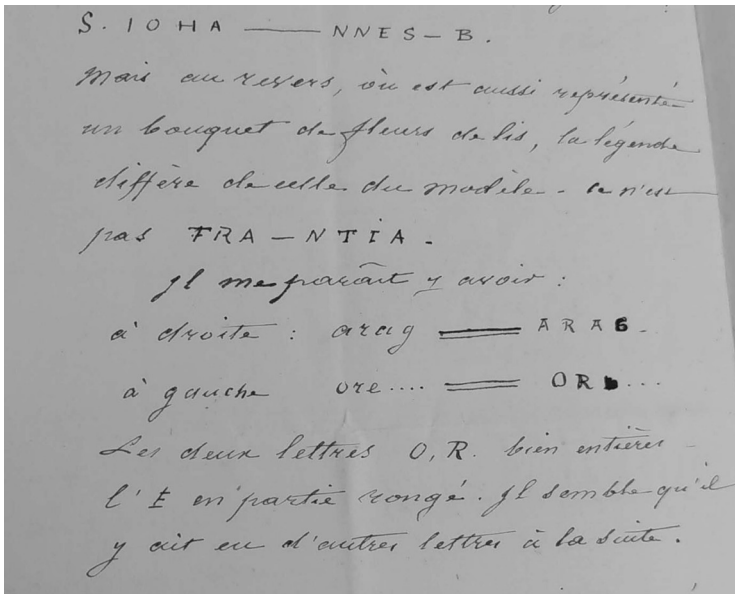 S. IOHA —— NNES – B.
Mais au revers, où est aussi représenté
un bouquet de fleurs de lis, la légende
diffère de celle du modèle. Ce n'est
pas FRA – NTIA.
Il me paraît y avoir :
à droite : arag ═══ ARAG.
à gauche ore.... ═══ OR ...
Les deux lettres O, R. bien entières
l'E en partie rongé. Il semble qu'il
y ait eu d'autres lettres à la suite.